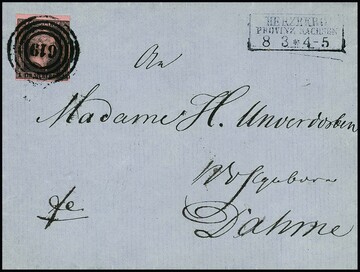 619
HERZBERG
PROVINZ SACHSEN
8 3 * 4-5
An
Madame H. Unverdorben
Wohlgeboren
Dahme
fr.